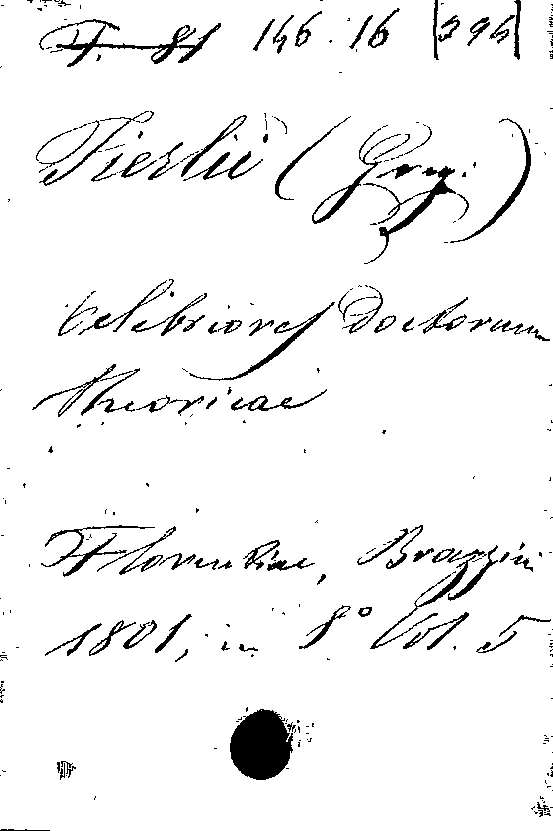 F. 81 146. 16 394
Fierlii (Greg:)
Celebriores Doctorum
theoricae
Florentiae, Brazzini
1801, in 8° Vol. 5